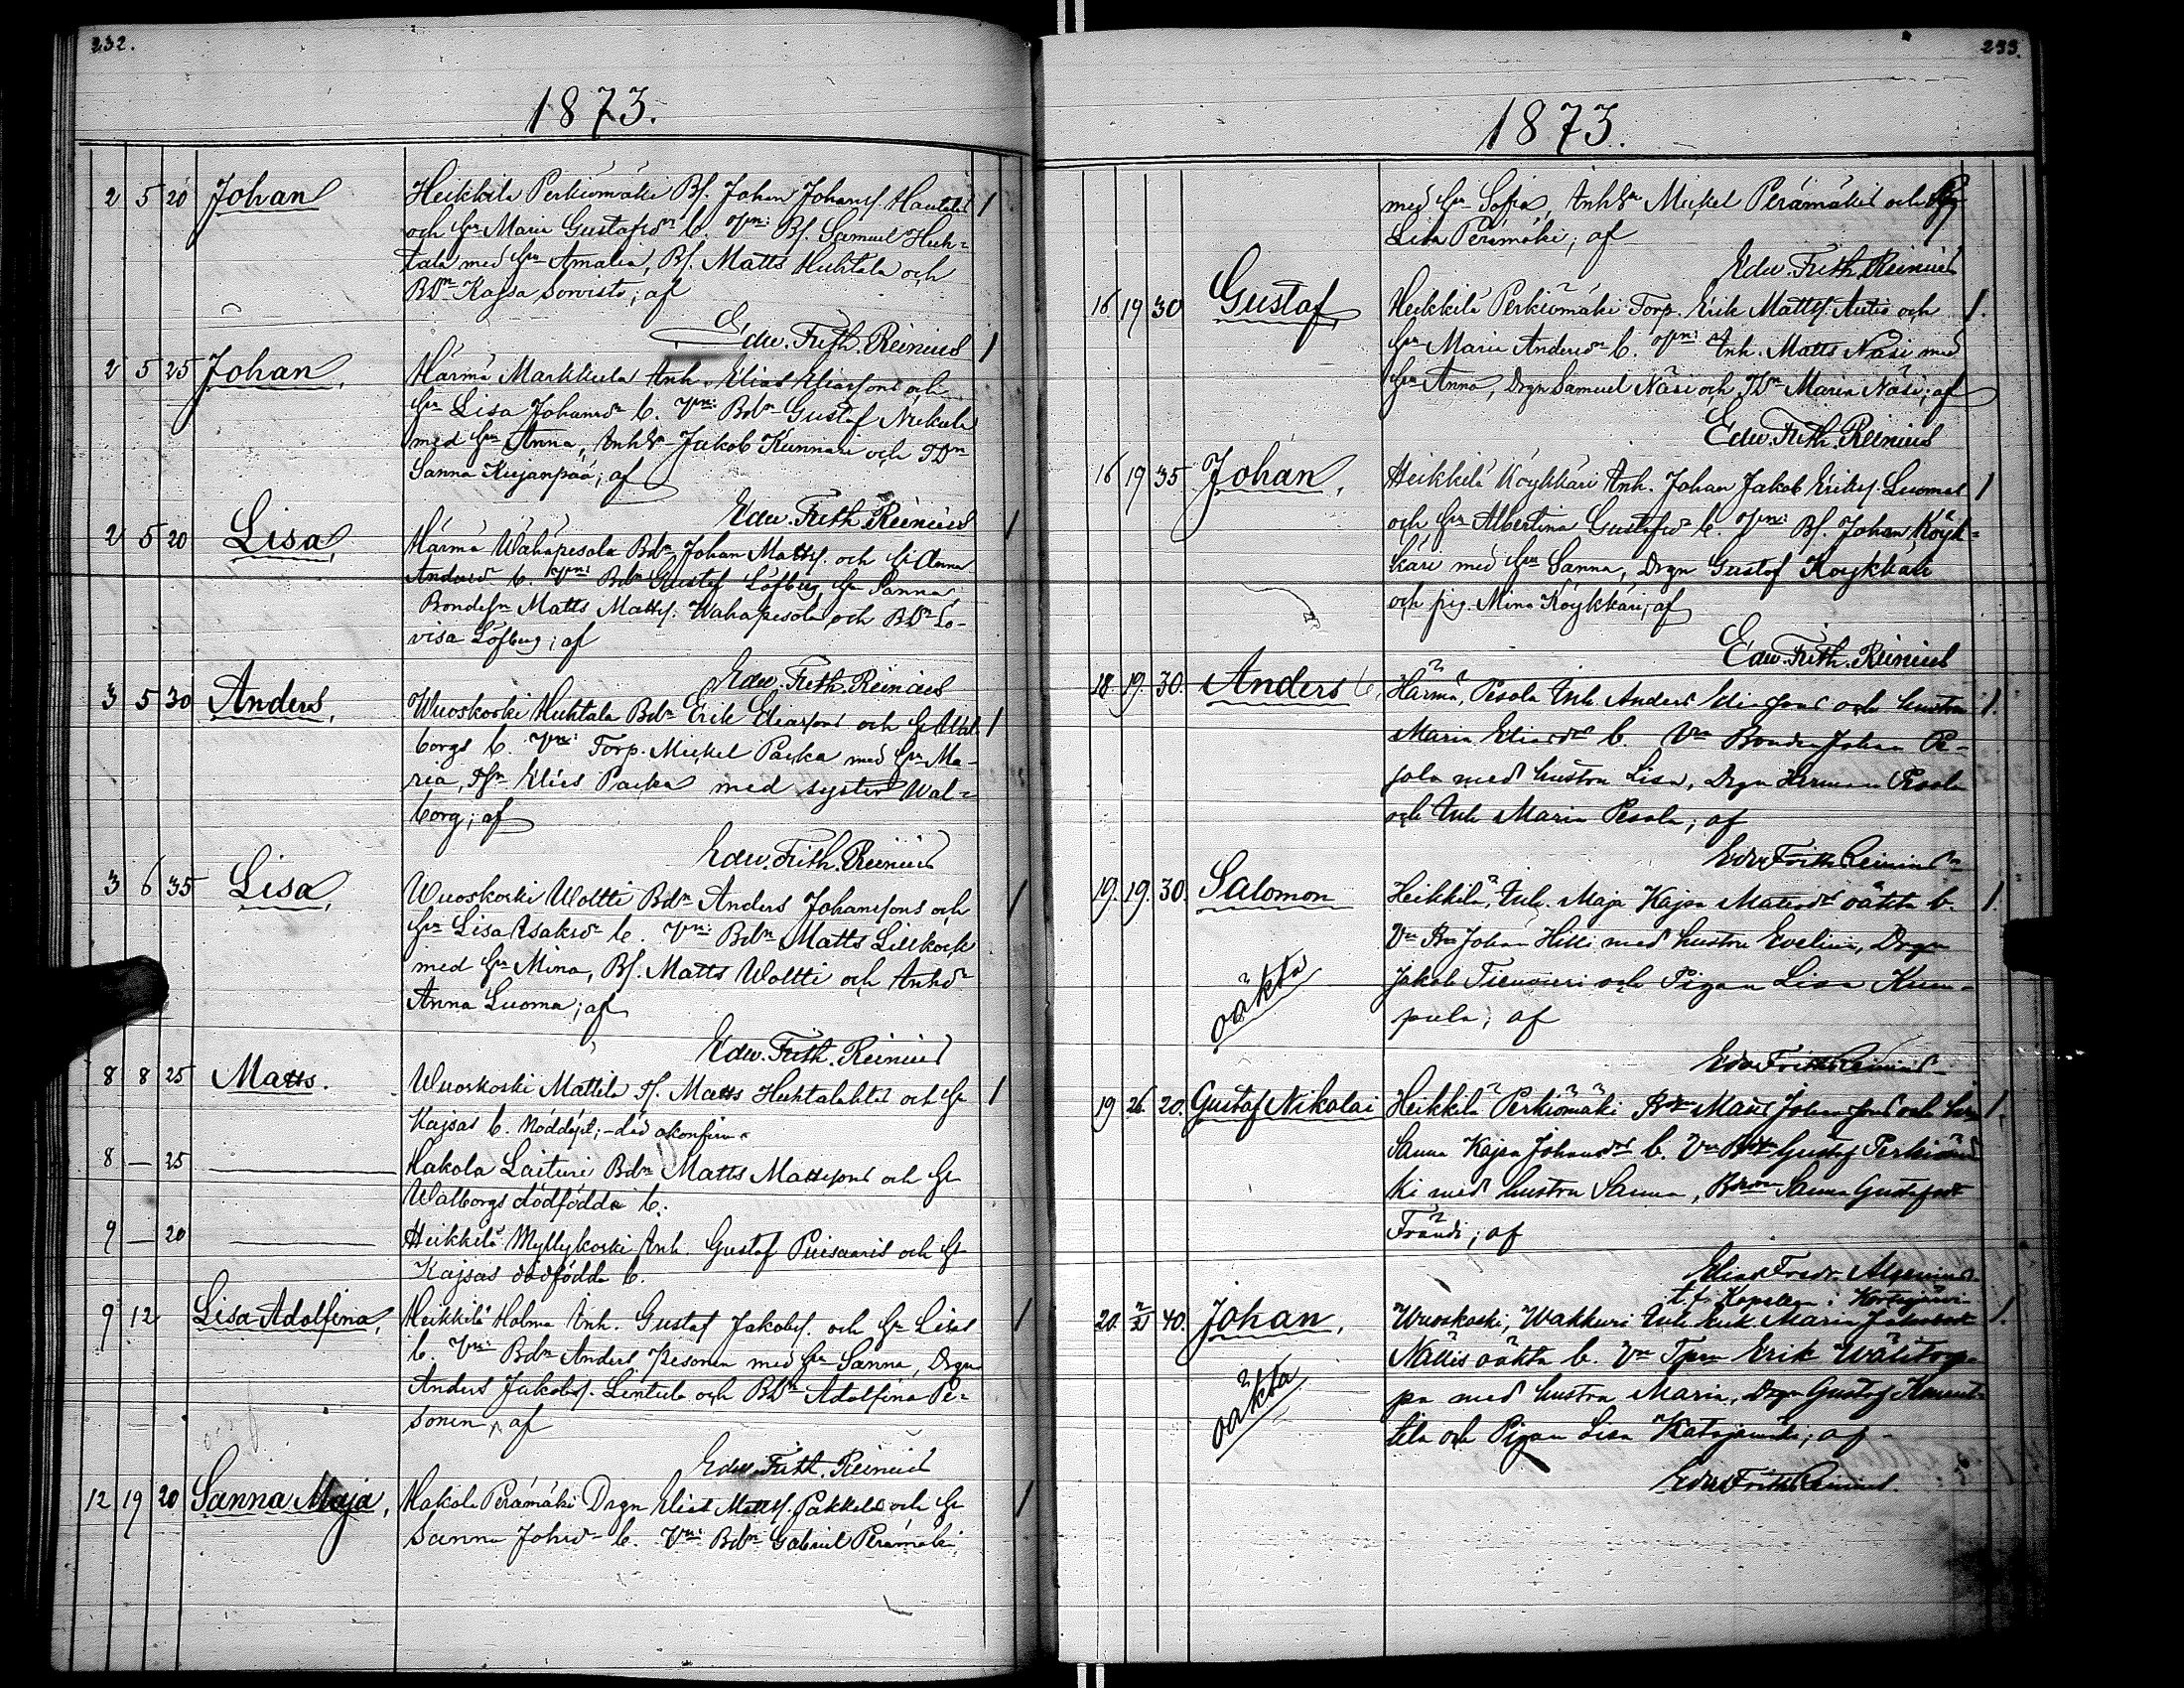 232.
1873.
2 5 20 Johan Heikkilä Perkiömäki Bs. Johan Johanss.
och hu Maria Gustafsdr b. Vni: Bs. Samuel Huh-
tala med hu Amalia, Bs. Matts Huhtala och
BDr Kajsa Sorvisto; af
Edw. Frith. Reinius
2 5 25 Johan, Härmä Markkula Inh. Elias Eliassons och
hu Lisa Johansdr b. Vni: Bdn Gustaf Nikula
med hu Anna, Jakob Kunnari och TDr
Sanna Kujanpää; af
Edw. Frith. Reinius
2 5 20 Lisa, Härmä Wähäpesola Bdn Johan Matts. och hu Anna
Andersdr b. Vni: Bdn Gustaf Löfberg, hu Sanna
Matts Matts. Wähapesola och BDr Lo-
visa Löfberg; af
Edw. Frith. Reinius
3 5 30 Anders, Wuoskoski Huhtala Bdn Erik Eliassons och hu Wal-
borgs b. Vni: Torp. Mickel Packa med hu Ma-
ria, Elias Packa med syster Wal-
borg; af
Edw. Frith. Reinius
3 6 35 Lisa, Wuoskoski Woltti Bdn Anders Johanssons och
hu Lisa Isaksdr b. Vni: Bdn Matts Lillkock
med hu Mina, Bs. Matts Woltti och
Anna Luoma; af
Edw. Frith. Reinius
8 8 25 Matts. Wuoskoski Mattila Matts Huhtalas och hu
Kajsas b. Nöddöpt; - död okonfirm.
8 — 25 Hakola Laituri Bdn Matts Mattssons och hu
Walborgs dödfödda b.
9 — 20 Heikkilä Myllykoski Inh. Gustaf Puisaaris och hu
Kajsas dödfödda b.
9 12 Lisa Adolfina, Heikkilä Holma Inh. Gustaf Jakobs. och hu Lisas
b. Vni: Bdn Anders Pesonen med hu Sanna, Drgn
Anders Jakobs. Lintula och BDr Adolfina Pe-
sonen, af
Edw. Frith. Reinius
12 19 20 Sanna Maja, Hakola Perämäki Drgn Elias Matts. Pakkala och hu
Sanna Johsdr b. Vni: Bdn Gabriel Perämäki
233.
1873.
med hu Sofia, Mickel Perämäki och Pig
Lisa Perämäki; af
Edw. Frith. Reinius
16 19 30 Gustaf, Heikkilä Perkiömäki Torp. Erik Matts. Autio och
hu Maria Andersdr b. Vni: Inh. Matts Näsi med
hu Anna, Drgn Samuel Näsi och TDr Maria Näsi; af
Edw. Frith. Reinius
16 19 35 Johan, Heikkilä Köykkäri Inh. Johan Jakob Eriks. Luomas
och hu Albertina Gustafsdr b. Vni: Bs. Johan Köyk-
käri med hu Sanna, Drgn Gustaf Köykkäri
och pig. Mina Köykkäri; af
Edw. Frith. Reinius
18. 19. 30. Anders Härmä, Pesola Inh. Anders Eliassons och hustru
Maria Eliasdr b. Vn Bonden Johan Pe-
sola med hustru Lisa, Drgn Herman Pesola
och Inh Maria Pesola; af
Edw Frith Reinius
19. 19. 30. Salomon Heikkilä, Inh. Maja Kajsa Matsdr oäkta b.
oäkta
Vn Bn Johan Hilli med hustru Evelina, Drgn
Jakob och Pigan Lisa Kum-
pula; af
Edw Frith Reinius
19 26. 20. Gustaf Nikolai Heikkilä Perkiömäki Bdn Mats Johanssons och hu
Sanna Kajsa Johansdr b. Vn Bdn Gustaf Perkiömä-
ki med hustru Sanna, Sanna Gustafsdr
Frändi; af
Elias Fredr. Alcenius
t.f. Kapellan i Kortesjärvi
20. 2/21 40. Johan, Wuoskoski, Wakkuri Inh Maria
oäkta
oäkta b. Vn Erik Wälitorp-
pa med hustru Maria, Drgn Gustaf Karent-
tila och Pigan Lisa Katajamäki; af
Edw Frith Reinius.